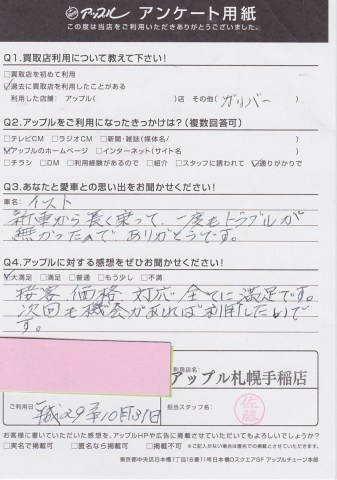 アップル アンケート用紙
この度は当店をご利用いただきありがとうございました。
Q1.買取店利用について教えて下さい!
□買取を初めて利用
☑過去に買取店を利用したことがある
利用した店舗: アップル( )店 その他( ガリバー )
Q2.アップルをご利用になったきっかけは?(複数回答可)
□テレビCM □ラジオCM □新聞・雑誌(媒体名/ )
☑アップルのホームページ □インターネット(サイト名 )
□チラシ □DM □利用経験があるので □紹介 □スタッフに誘われて ☑通りがかりで
Q3.あなたと愛車との思い出をお聞かせください!
車名: イスト
新車から長く乗って、一度もトラブルが
無かったので ありがとうです。
Q4.アップルに対する感想をぜひお聞かせください!
☑大満足 □満足 □普通 □もう少し □不満
接客、価格、対応 全てに満足です。
次回も機会があれば利用したいで
す。
利用店名:
アップル札幌手稲店
ご利用日 平成29年10月31日
担当スタッフ名: 佐藤
お客様に書いていただいた感想を、アップルHPや広告に掲載させていただいてもよろしいでしょうか?
□実名で掲載可 □匿名なら掲載可 □掲載不可
東京都中央区日本橋1丁目16番11号日本橋DスクエアBF アップルチェーン本部